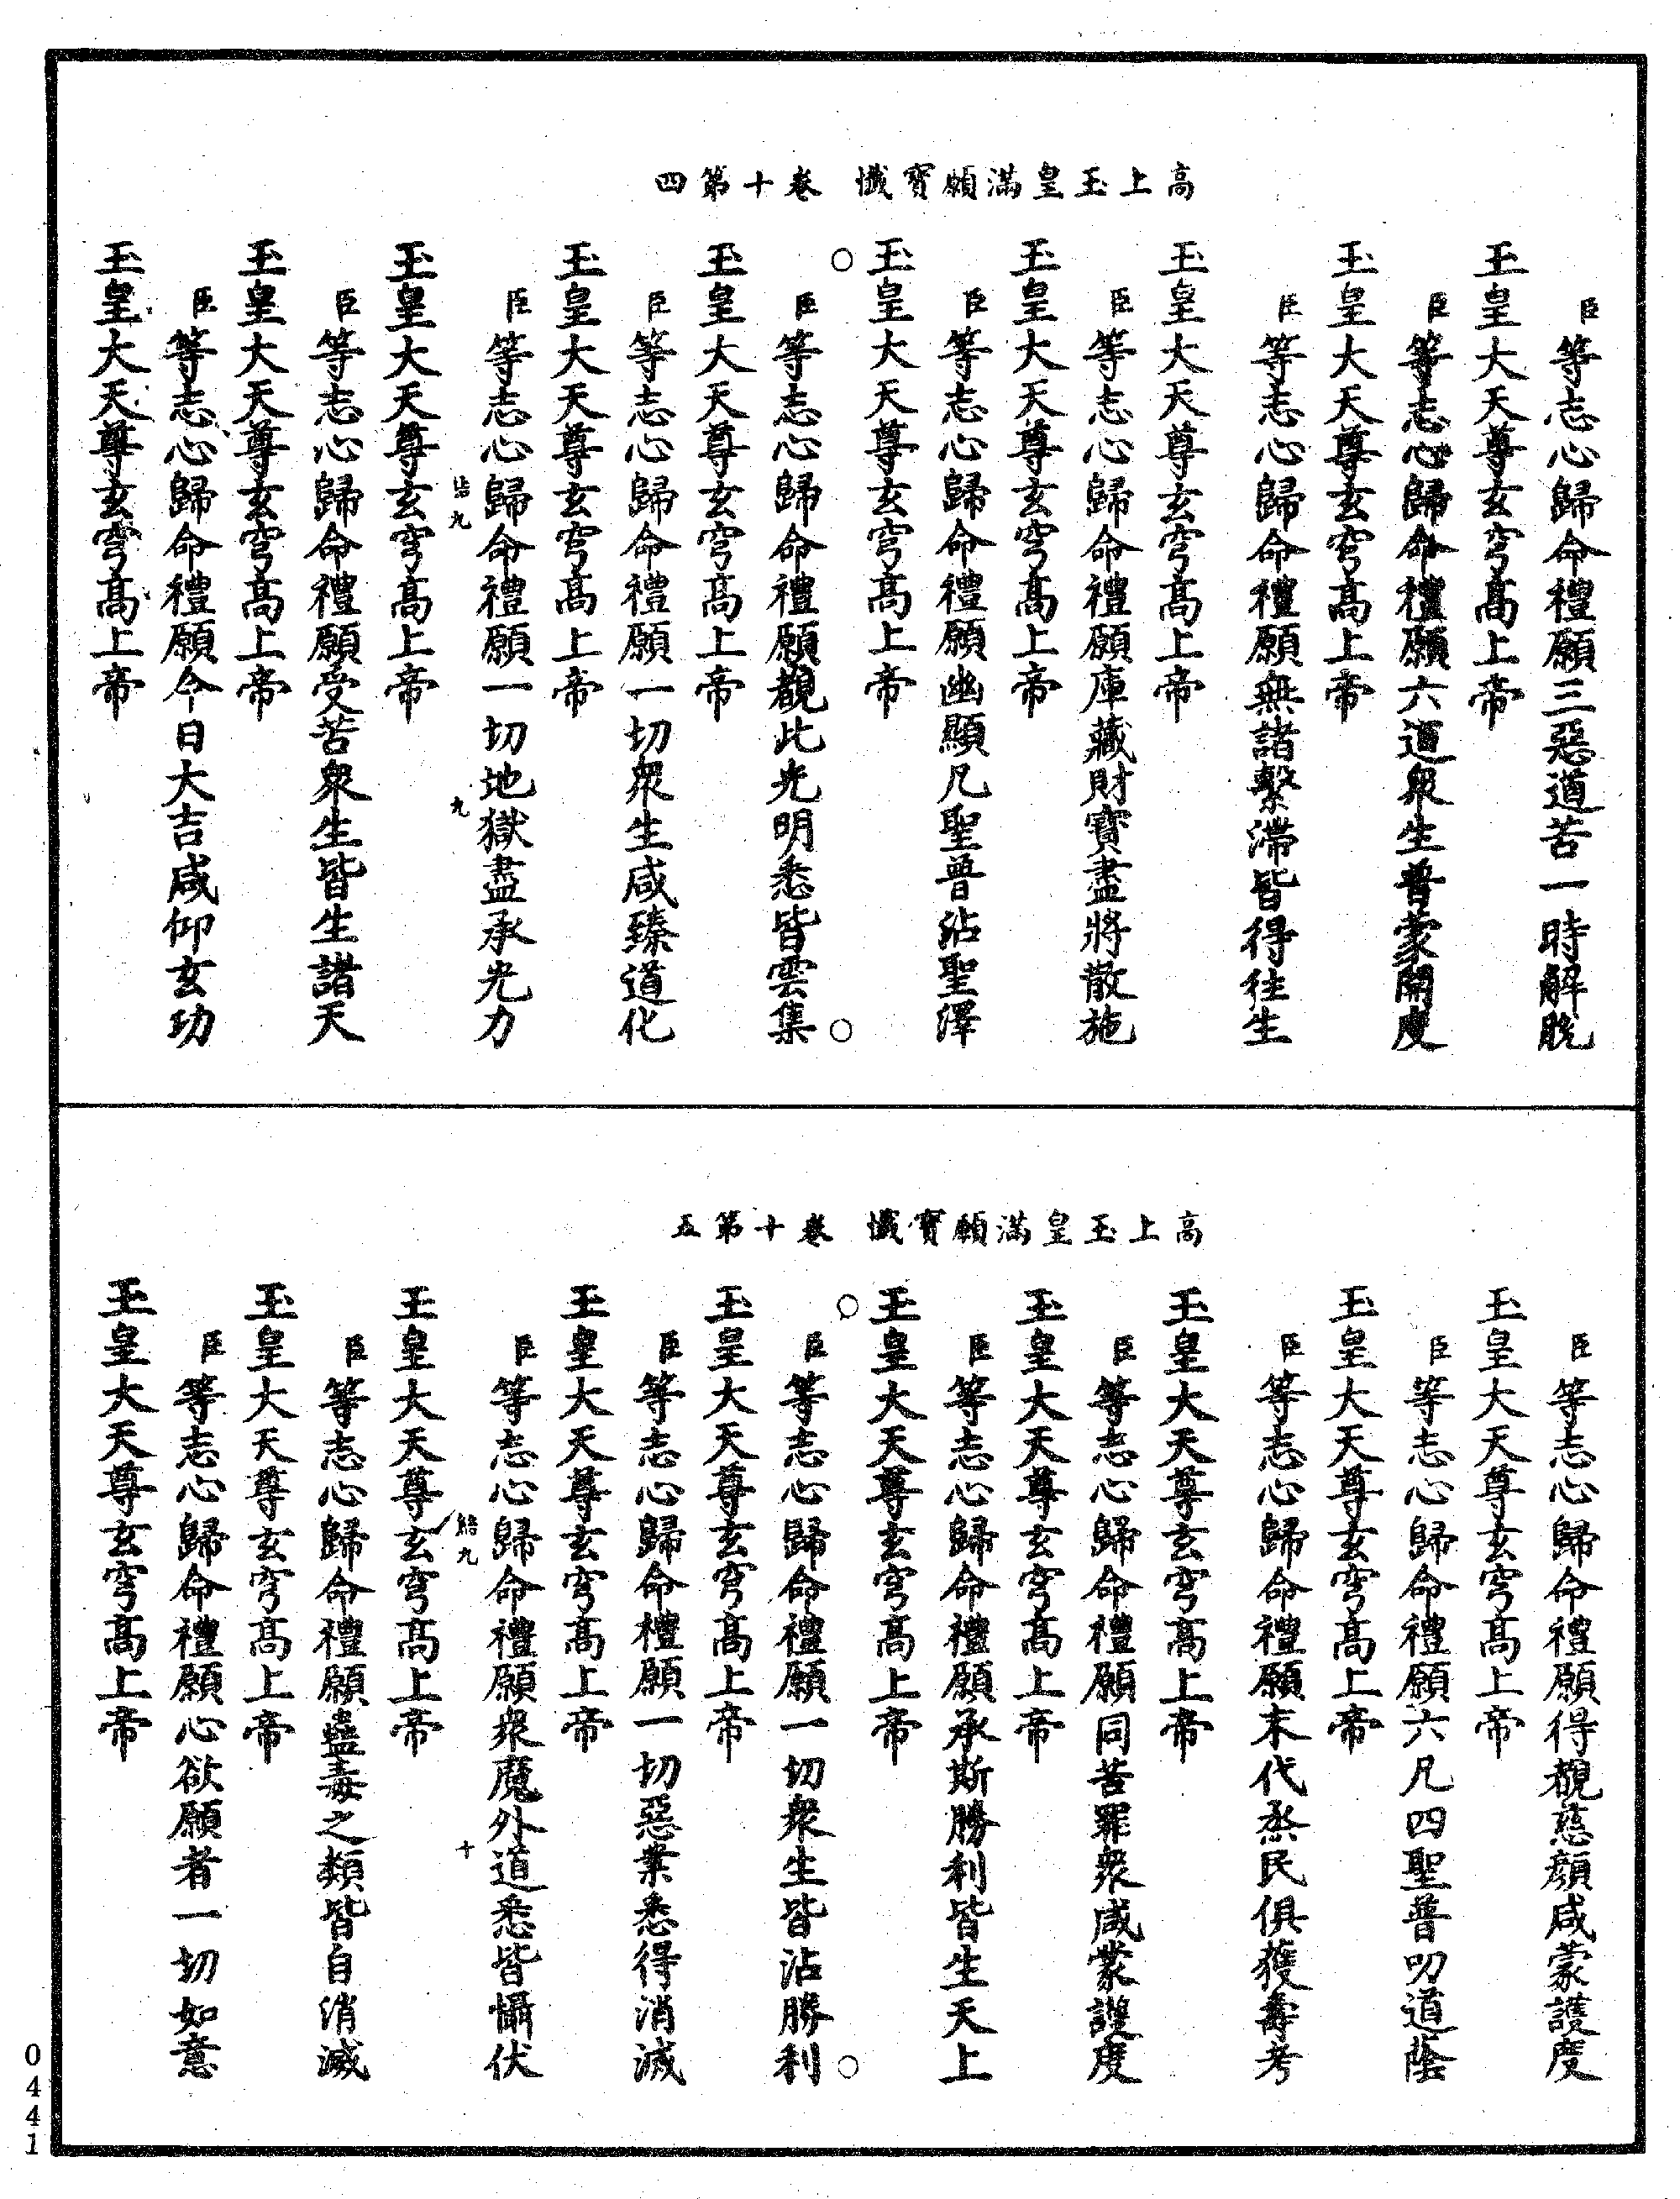 高上玉皇滿願寶懺 卷十第四
臣等志心歸命禮願三惡道苦一時解脫
玉皇大天尊玄穹高上帝
臣等志心歸命禮願六道衆生普蒙開度
玉皇大天尊玄穹高上帝
臣等志心歸命禮願無諸繫滯皆得往生
玉皇大天尊玄穹高上帝
臣等志心歸命禮願庫藏財寶盡將散施
玉皇大天尊玄穹高上帝
臣等志心歸命禮願幽顯凡聖普沾聖澤
玉皇大天尊玄穹高上帝
○ ○
臣等志心歸命禮願覩此光明悉皆雲集
玉皇大天尊玄穹高上帝
臣等志心歸命禮願一切衆生咸臻道化
玉皇大天尊玄穹高上帝
臣等志心歸命禮願一切地獄盡承光力
九 九
玉皇大天尊玄穹高上帝
臣等志心歸命禮願受苦衆生皆生諸天
玉皇大天尊玄穹高上帝
臣等志心歸命禮願今日大吉咸仰玄功
玉皇大天尊玄穹高上帝
高上玉皇滿願寶懺 卷十第五
臣等志心歸命禮願得覩慈顔咸蒙護度
玉皇大天尊玄穹高上帝
臣等志心歸命禮願六凡四聖普叨道蔭
玉皇大天尊玄穹高上帝
臣等志心歸命禮願末代烝民俱獲壽考
玉皇大天尊玄穹高上帝
臣等志心歸命禮願同苦罪衆咸蒙護度
玉皇大天尊玄穹高上帝
臣等志心歸命禮願承斯勝利皆生天上
玉皇大天尊玄穹高上帝
○ ○
臣等志心歸命禮願一切衆生皆沾勝利
玉皇大天尊玄穹高上帝
臣等志心歸命禮願一切惡業悉得消滅
玉皇大天尊玄穹高上帝
臣等志心歸命禮願衆魔外道悉皆懾伏
九 十
玉皇大天尊玄穹高上帝
臣等志心歸命禮願蠱毒之類皆自消滅
玉皇大天尊玄穹高上帝
臣等志心歸命禮願心欲願者一切如意
玉皇大天尊玄穹高上帝
0441